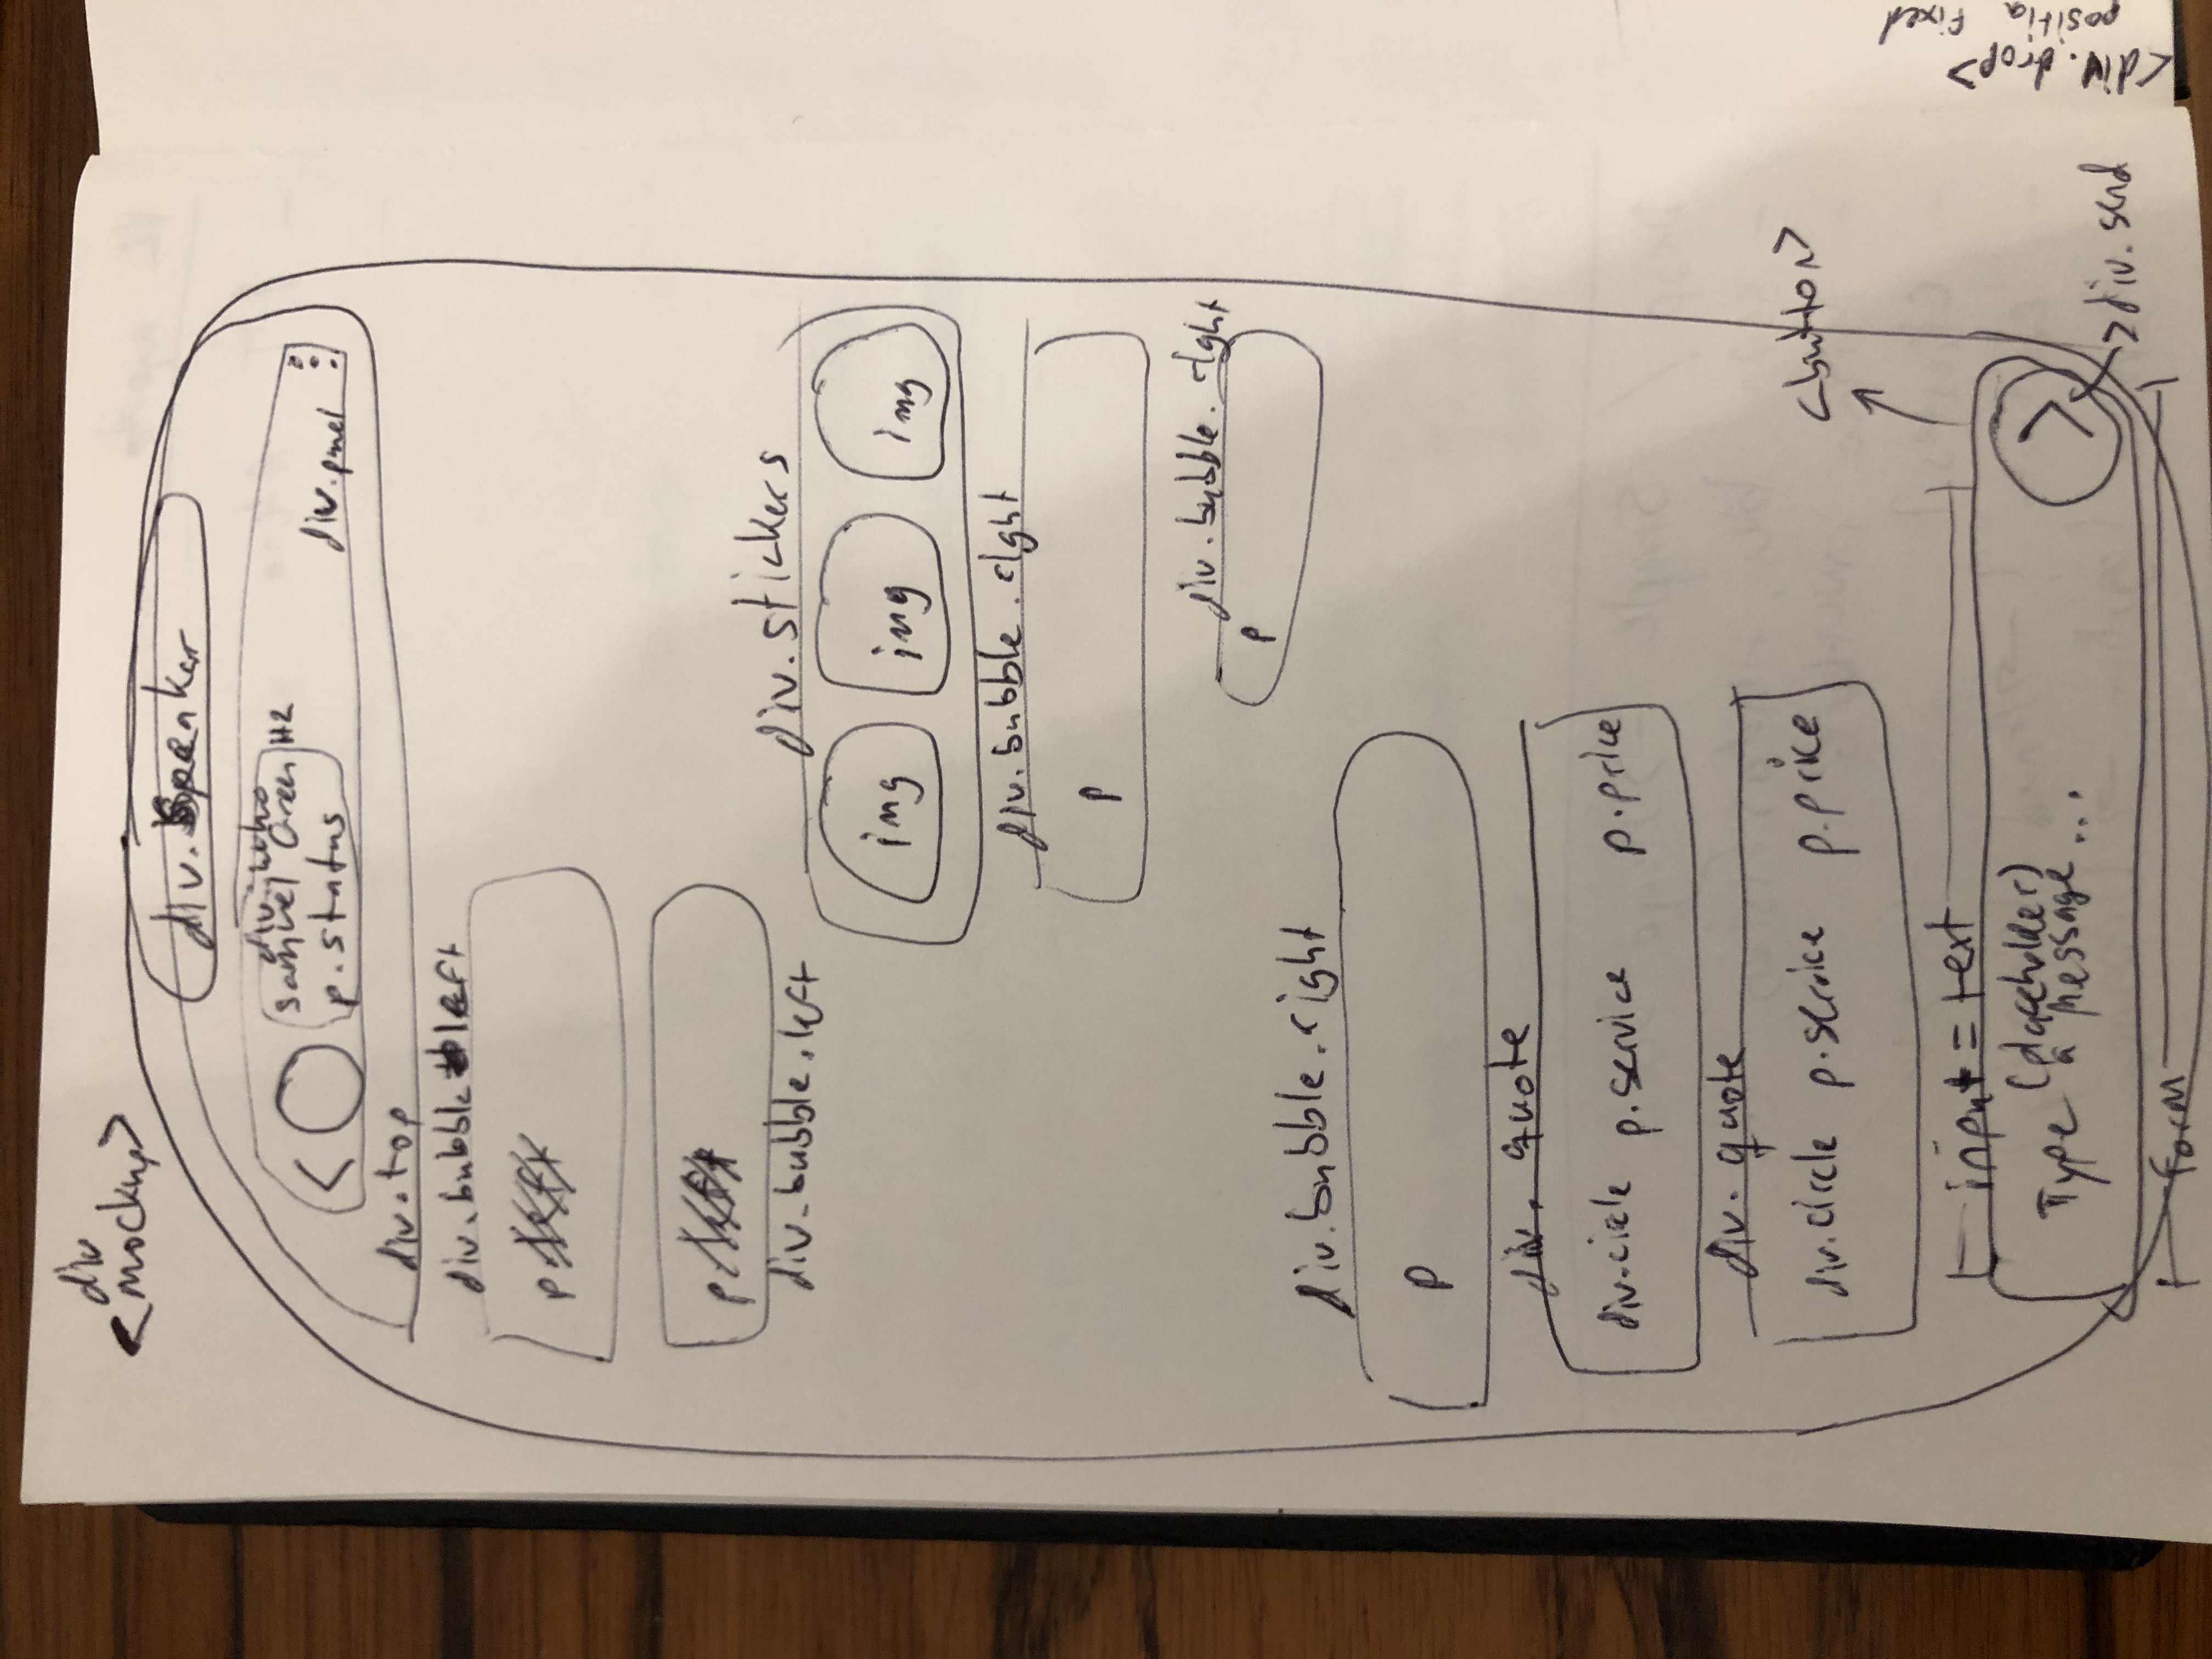 div
<mockup>
div.Speaker
div.who
Samuel Green H2
< p.status
div.panel
div.top
div.bubble left
p
p
div.bubble.left
div.stickers
img img img
div.bubble.right
p
div.bubble.right
p
div.bubble.right
p
div. quote
div.circle p.service p.price
div. quote
div.circle p.service p.price
<button>
input = text
(placeholder)
Type a message...
>
div.send
form
<div.drop>
position fixed